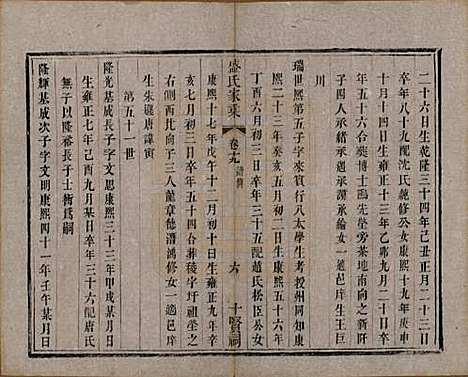 二十六日生乾隆三十四年己丑正月二十三日
卒年八十九配沈氏縂修公女康熙十九年庚申
十月十四日生雍正十二年甲寅二月二十日卒
年五十六葬博士鷗先塋旁茶地南向之新阡
子四人承遇承謨承綸女一適邑庠生王巨
川
瑞世熙第五子字來賓行八太學生考授州同知康
熙二十三年癸亥五月初二日生康熙五十六年
丁酉六月初三日卒年三十五配趙氏松臣公女
盛氏家乘
卷九
譜牒
六
十賢祠
康熙十七年戊午十二月初十日生雍正九年辛
亥七月初三日卒年五十四合葬稜字圩祖塋之
右側丙向子八人龍章德潛鴻修女一適邑庠
生朱寢唐諱寅
第五十一世
隆光基成長子字文思康熙三十三年甲戌某月日
生雍正七年己酉九月某日卒年三十六配唐氏
無子以隆裕長子士衡爲嗣
隆輝基成次子字文明康熙四十一年壬午某月日